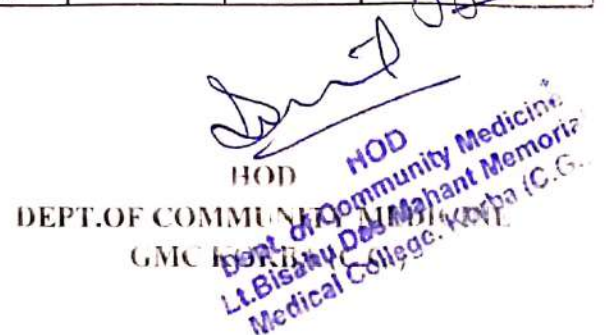 HOD
DEPT.OF COMMUNITY MEDICINE
GMC KORBA (C.G.)
HOD
Dept. of Community Medicine
Lt.Bisahu Das Mahant Memorial
Medical College, Korba (C.G.